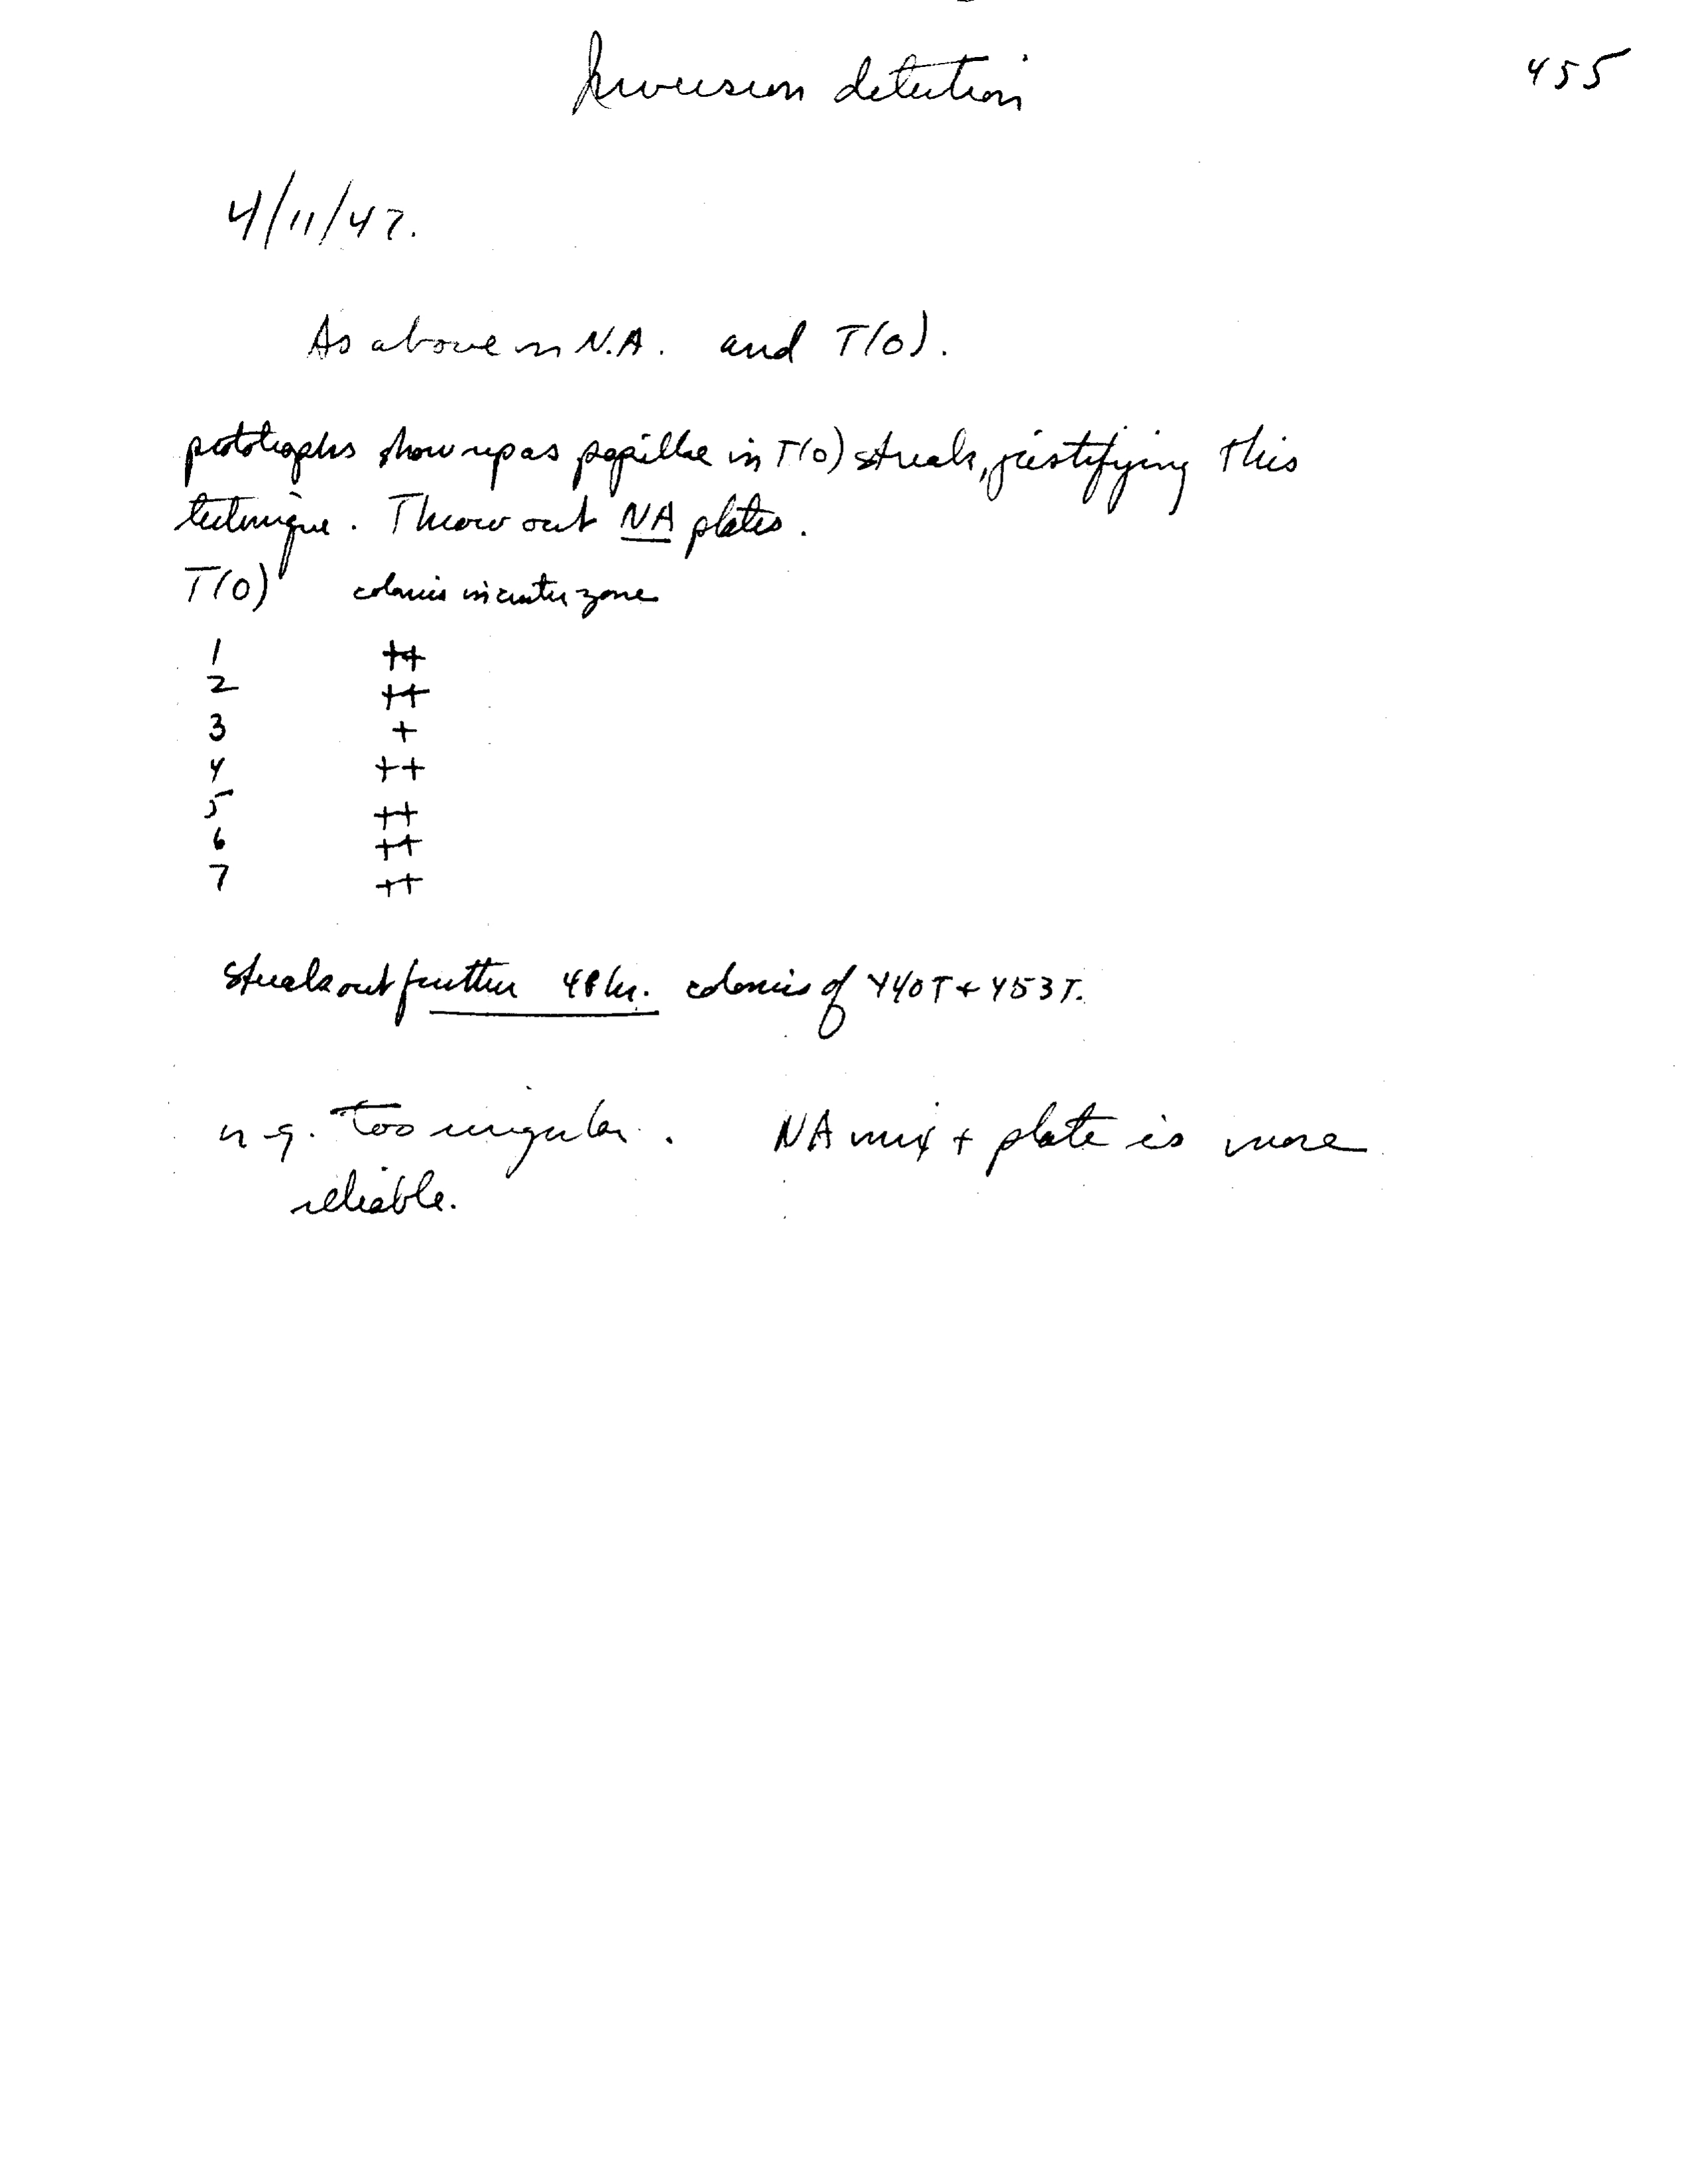 Inversion detection
455
4/11/47.
As above in N.A. and T(0).
prototrophs show up as papillae in T(0) streak, justifying this
technique. Throw out NA plates.
T(0) colonies in center zone
1 ++
2 ++
3 +
4 ++
5 ++
6 ++
7 ++
Streak out further 48 hr. colonies of 440T + 453T.
n.g. Too irregular. NA mix + plate is more
reliable.